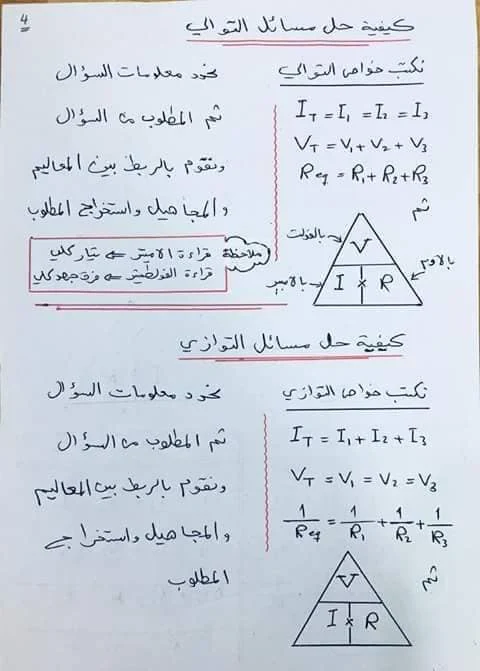 4
كيفية حل مسائل التوالي
نكتب خواص التوالي
I_T = I_1 = I_2 = I_3
V_T = V_1 + V_2 + V_3
R_eq = R_1 + R_2 + R_3
ثم
بالفولت
بالاوم
بالامبير
V
I × R
معلومات السؤال
ثم المطلوب من السؤال
ونقوم بالربط بين المعاليم
والمجاهيل واستخراج المطلوب
ملاحظة
قراءة الاميتر ⇐ تيار كلي
قراءة الفولطميتر ⇐ فرق جهد كلي
كيفية حل مسائل التوازي
نكتب خواص التوازي
I_T = I_1 + I_2 + I_3
V_T = V_1 = V_2 = V_3
1/R_eq = 1/R_1 + 1/R_2 + 1/R_3
ثم
V
I × R
معلومات السؤال
ثم المطلوب من السؤال
ونقوم بالربط بين المعاليم
والمجاهيل واستخراج
المطلوب